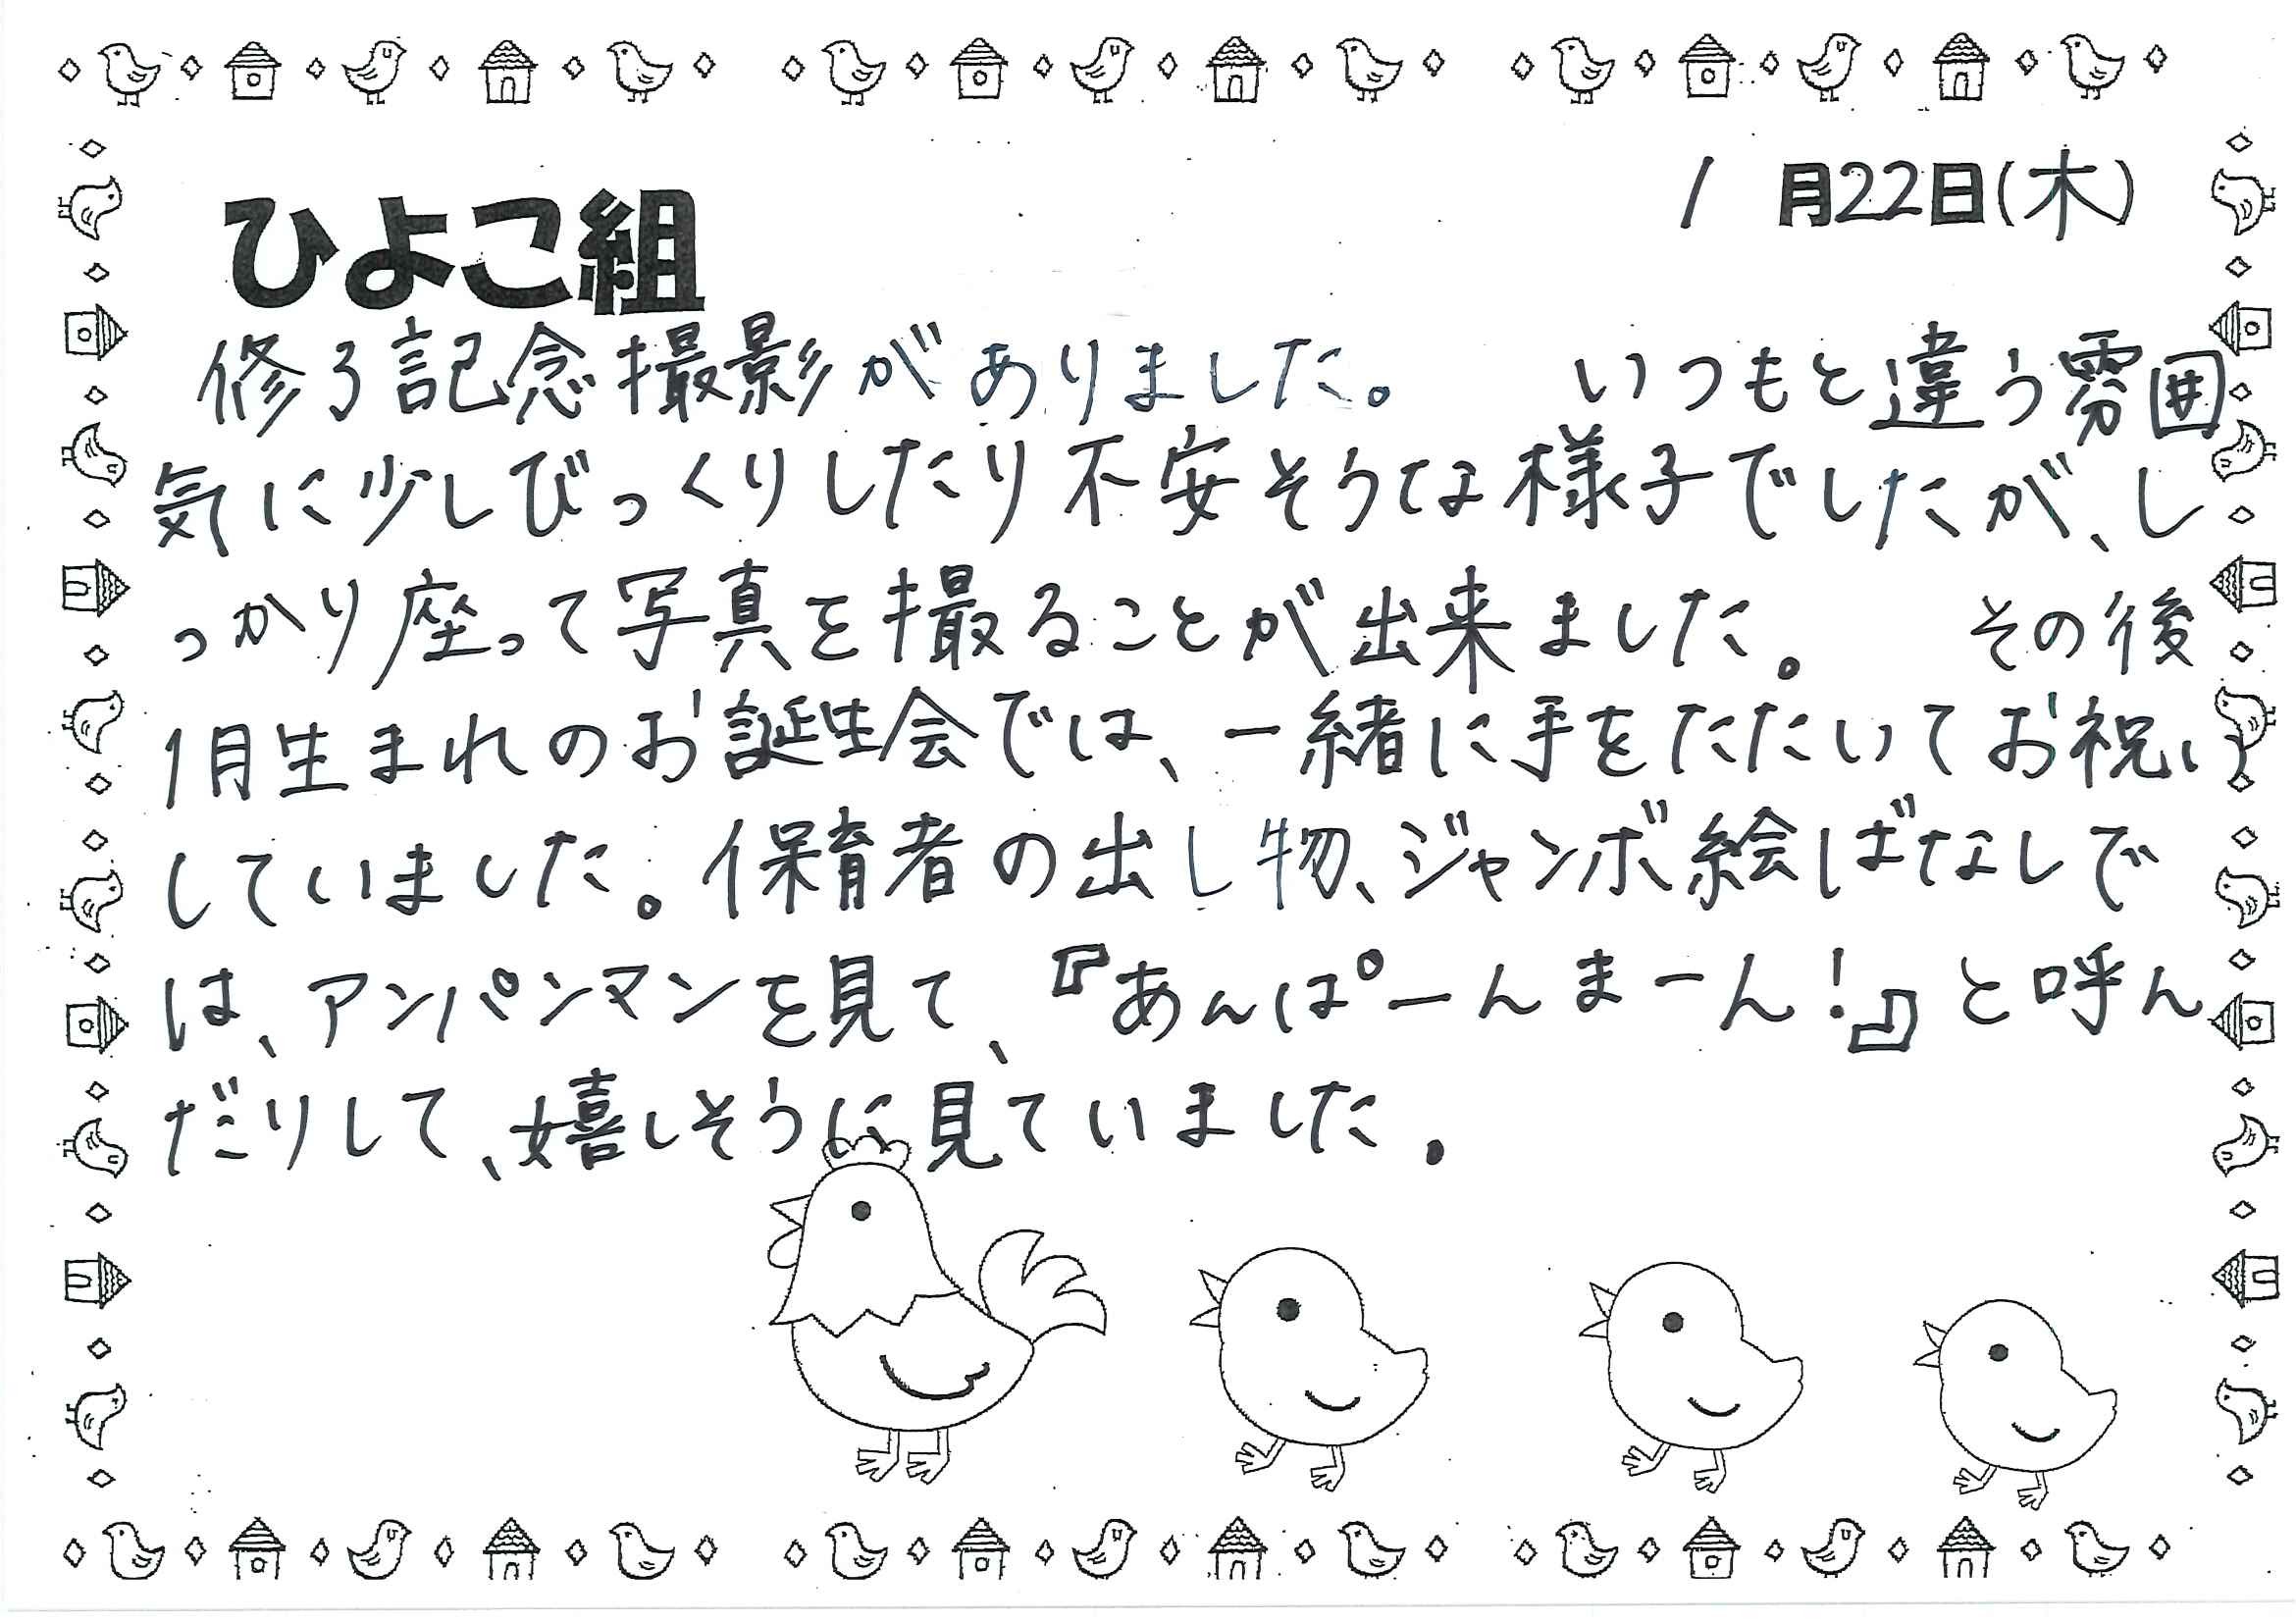 1月22日(木)
ひよこ組
修了記念撮影がありました。 いつもと違う雰囲
気に少しびっくりしたり不安そうな様子でしたが、し
っかり座って写真を撮ることが出来ました。 その後
1月生まれのお誕生会では、一緒に手をたたいてお祝い
していました。保育者の出し物、ジャンボ絵ばなしで
は、アンパンマンを見て、『あんぱーんまーん!』と呼ん
だりして、嬉しそうに見ていました。